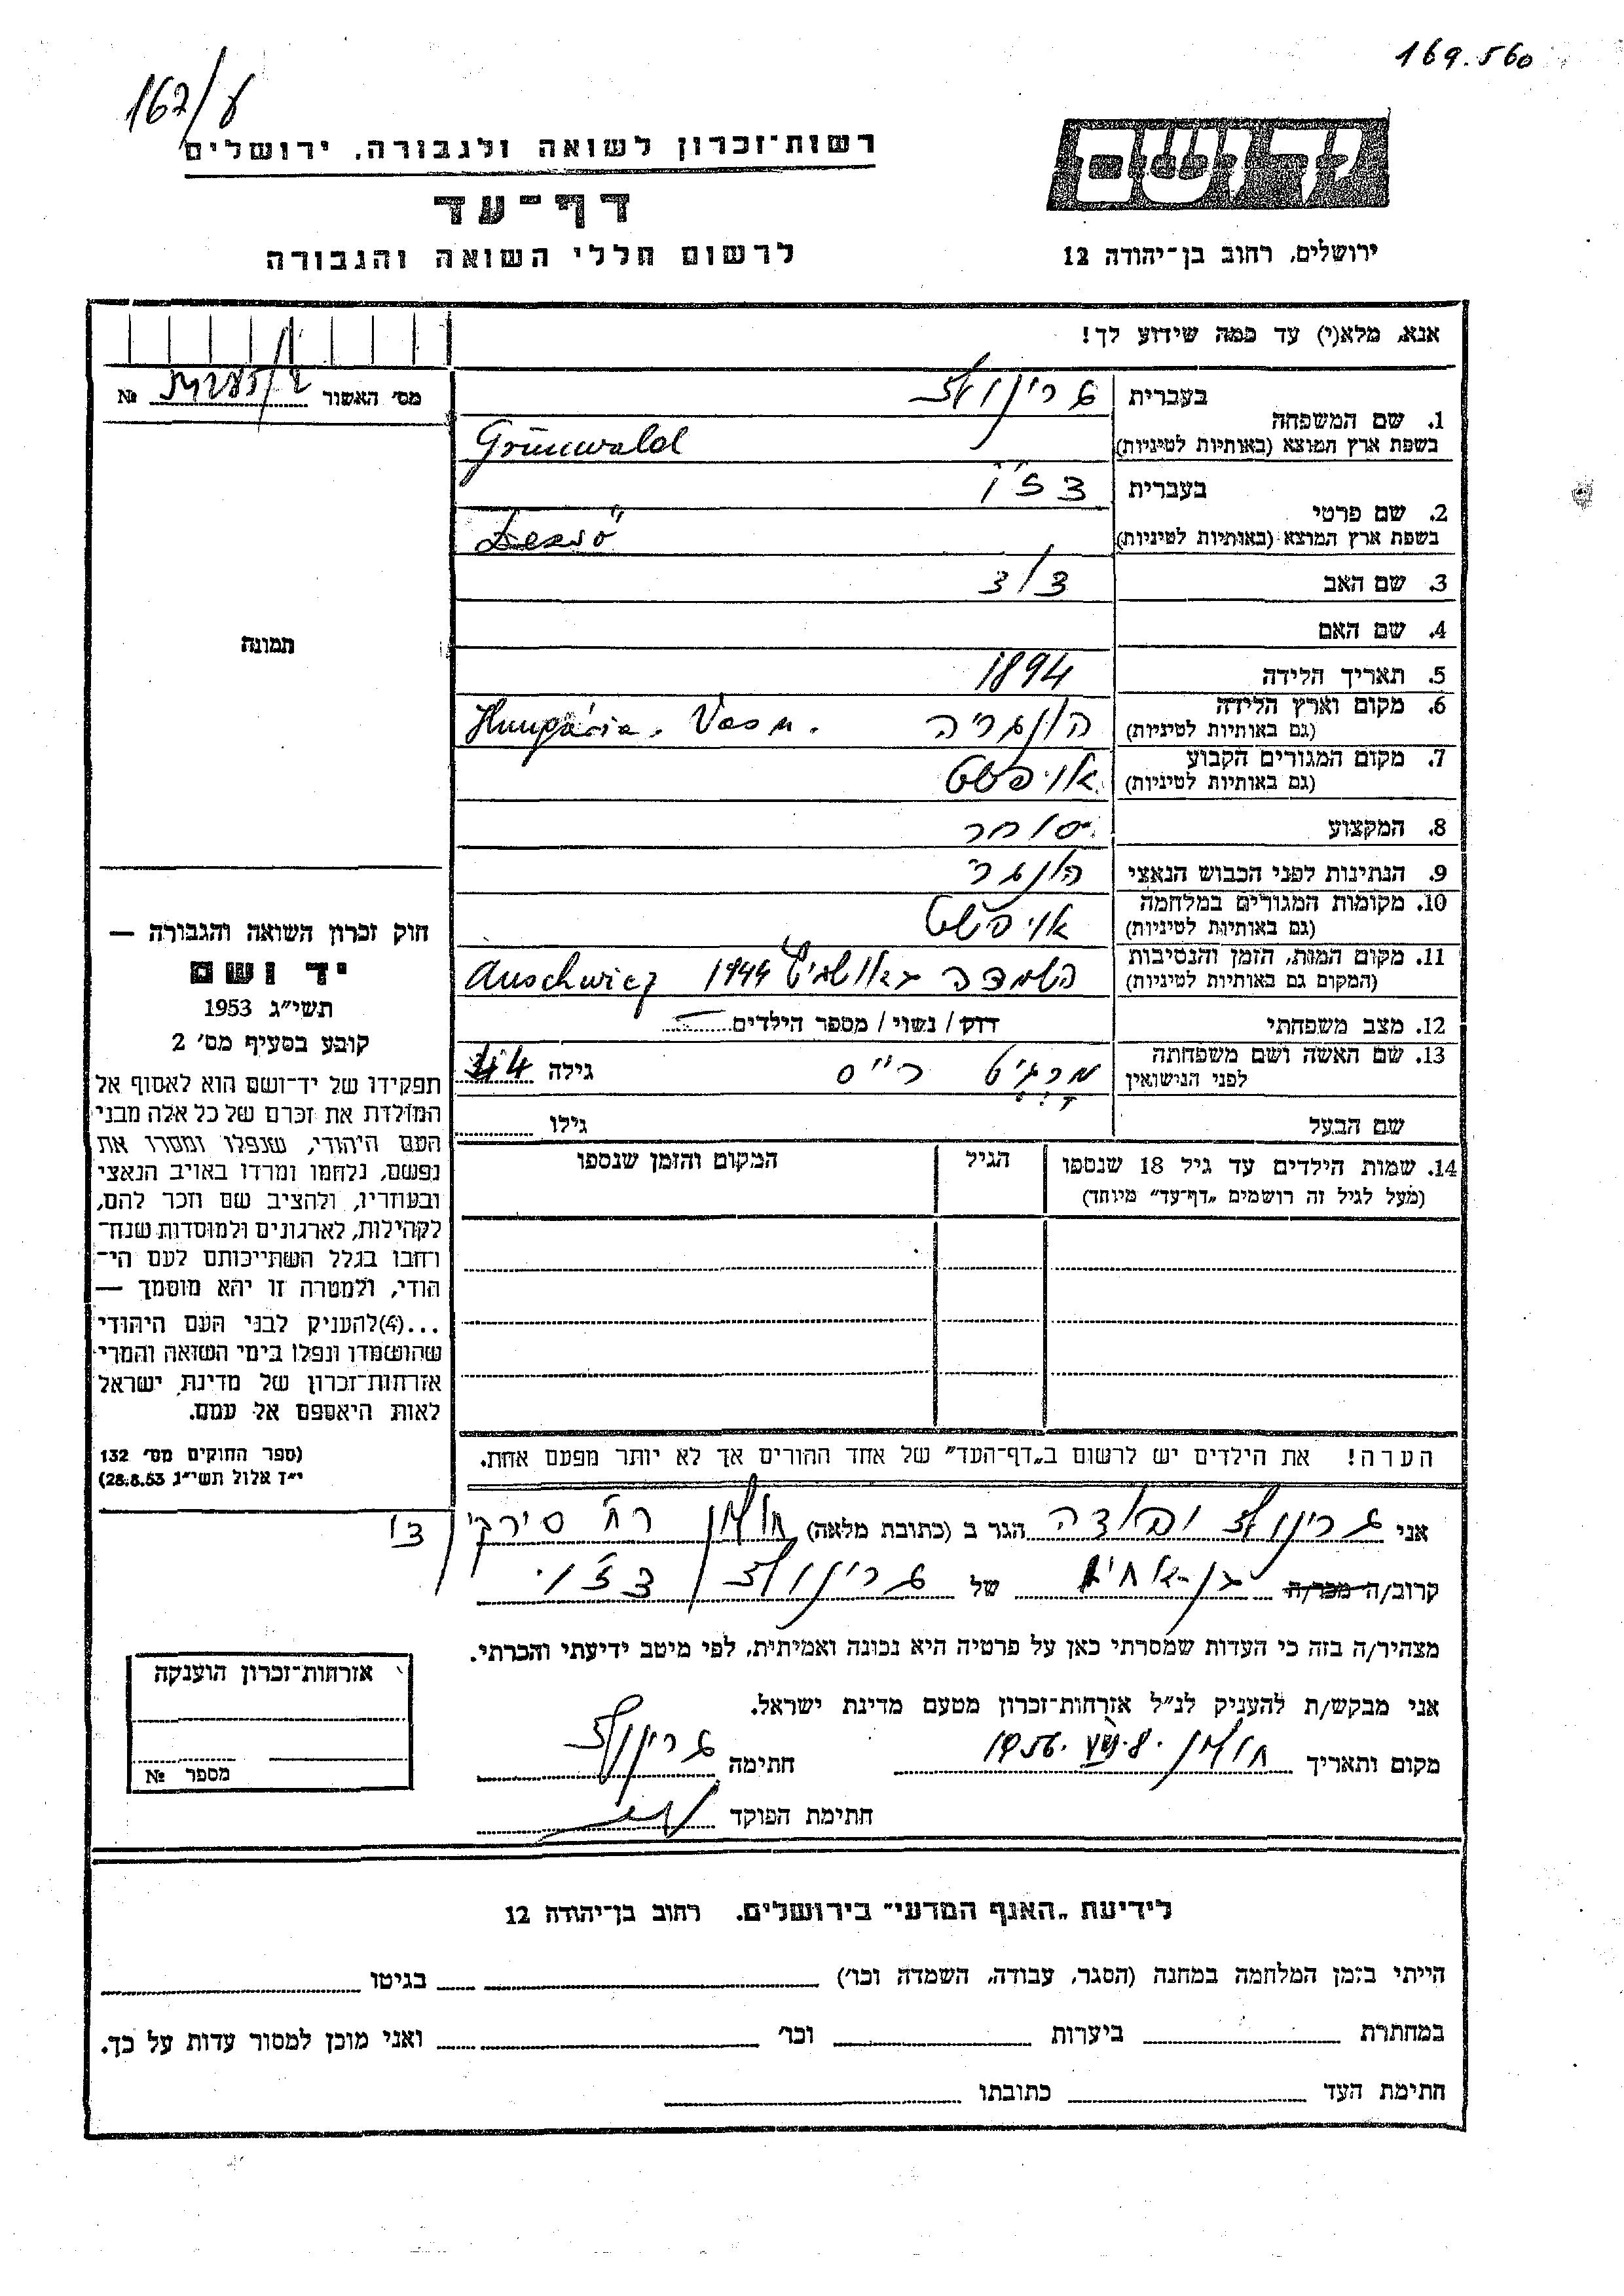 169.560
162/ע
רשות־זכרון לשואה ולגבורה, ירושלים
יד ושם
דף־עד
לרשום חללי השואה והגבורה
ירושלים, רחוב בן־יהודה 12
אנא, מלא(י) עד כמה שידוע לך!
מס' האשור №
1. שם המשפחה בעברית גרינולד
בשפת ארץ המוצא (באותיות לטיניות) Grünwald
2. שם פרטי בעברית דז'ו
בשפת ארץ המוצא (באותיות לטיניות) Dezső
3. שם האב
4. שם האם
5. תאריך הלידה 1894
6. מקום וארץ הלידה הונגריה Hungária. Vas m.
(גם באותיות לטיניות)
7. מקום המגורים הקבוע אויפשט
(גם באותיות לטיניות)
8. המקצוע סוחר
9. הנתינות לפני הכבוש הנאצי הונגרי
10. מקומות המגורים במלחמה אויפשט
(גם באותיות לטיניות)
11. מקום המות, הזמן והנסיבות השמדה באושביץ 1944 Auschwicz
(המקום גם באותיות לטיניות)
12. מצב משפחתי רוק / נשוי / מספר הילדים
13. שם האשה ושם משפחתה מרגיט רייס גילה 44
לפני הנישואין
שם הבעל גילו
14. שמות הילדים עד גיל 18 שנספו הגיל המקום והזמן שנספו
(מעל לגיל זה רושמים „דף־עד" מיוחד)
הערה! את הילדים יש לרשום ב„דף־העד" של אחד ההורים אך לא יותר מפעם אחת.
תמונה
חוק זכרון השואה והגבורה —
יד ושם
תשי"ג 1953
קובע בסעיף מס' 2
תפקידו של יד־ושם הוא לאסוף אל
המולדת את זכרם של כל אלה מבני
העם היהודי, שנפלו ומסרו את
נפשם, נלחמו ומרדו באויב הנאצי
ובעוזריו, ולהציב שם וזכר להם,
לקהילות, לארגונים ולמוסדות שנח־
רחבו בגלל השתייכותם לעם הי־
הודי, ולמטרה זו יהא מוסמך —
...(4)להעניק לבני העם היהודי
שהושמדו ונפלו בימי השואה והמרי
אזרחות־זכרון של מדינת ישראל
לאות היאספם אל עמם.
(ספר החוקים מס' 132
י"ז אלול תשי"ג 28.8.53)
אני גרינולד הגר ב (כתובת מלאה) חולון רח' סירקין
קרוב/ה מכר/ה בן-אחיו של גרינולד דז'ו
מצהיר/ה בזה כי העדות שמסרתי כאן על פרטיה היא נכונה ואמיתית, לפי מיטב ידיעתי והכרתי.
אני מבקש/ת להעניק לנ"ל אזרחות־זכרון מטעם מדינת ישראל.
מקום ותאריך חולון חתימה גרינולד
חתימת הפוקד
אזרחות־זכרון הוענקה
מספר №
לידיעת „האגף המדעי" בירושלים. רחוב בן־יהודה 12
הייתי בזמן המלחמה במחנה (הסגר, עבודה, השמדה וכו') בגיטו
במחתרת ביערות וכו' ואני מוכן למסור עדות על כך.
חתימת העד כתובתו